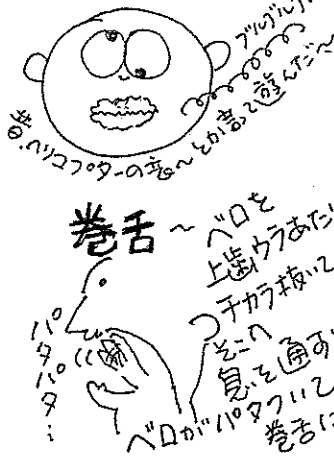 ブルブルブル
昔、ヘリコプターの音〜とか言って遊んだ〜
巻舌〜ベロを
上歯ウラあたり
チカラ抜いて
そこへ
息を通す
ベロがパタついて
巻舌に
パタパタ…